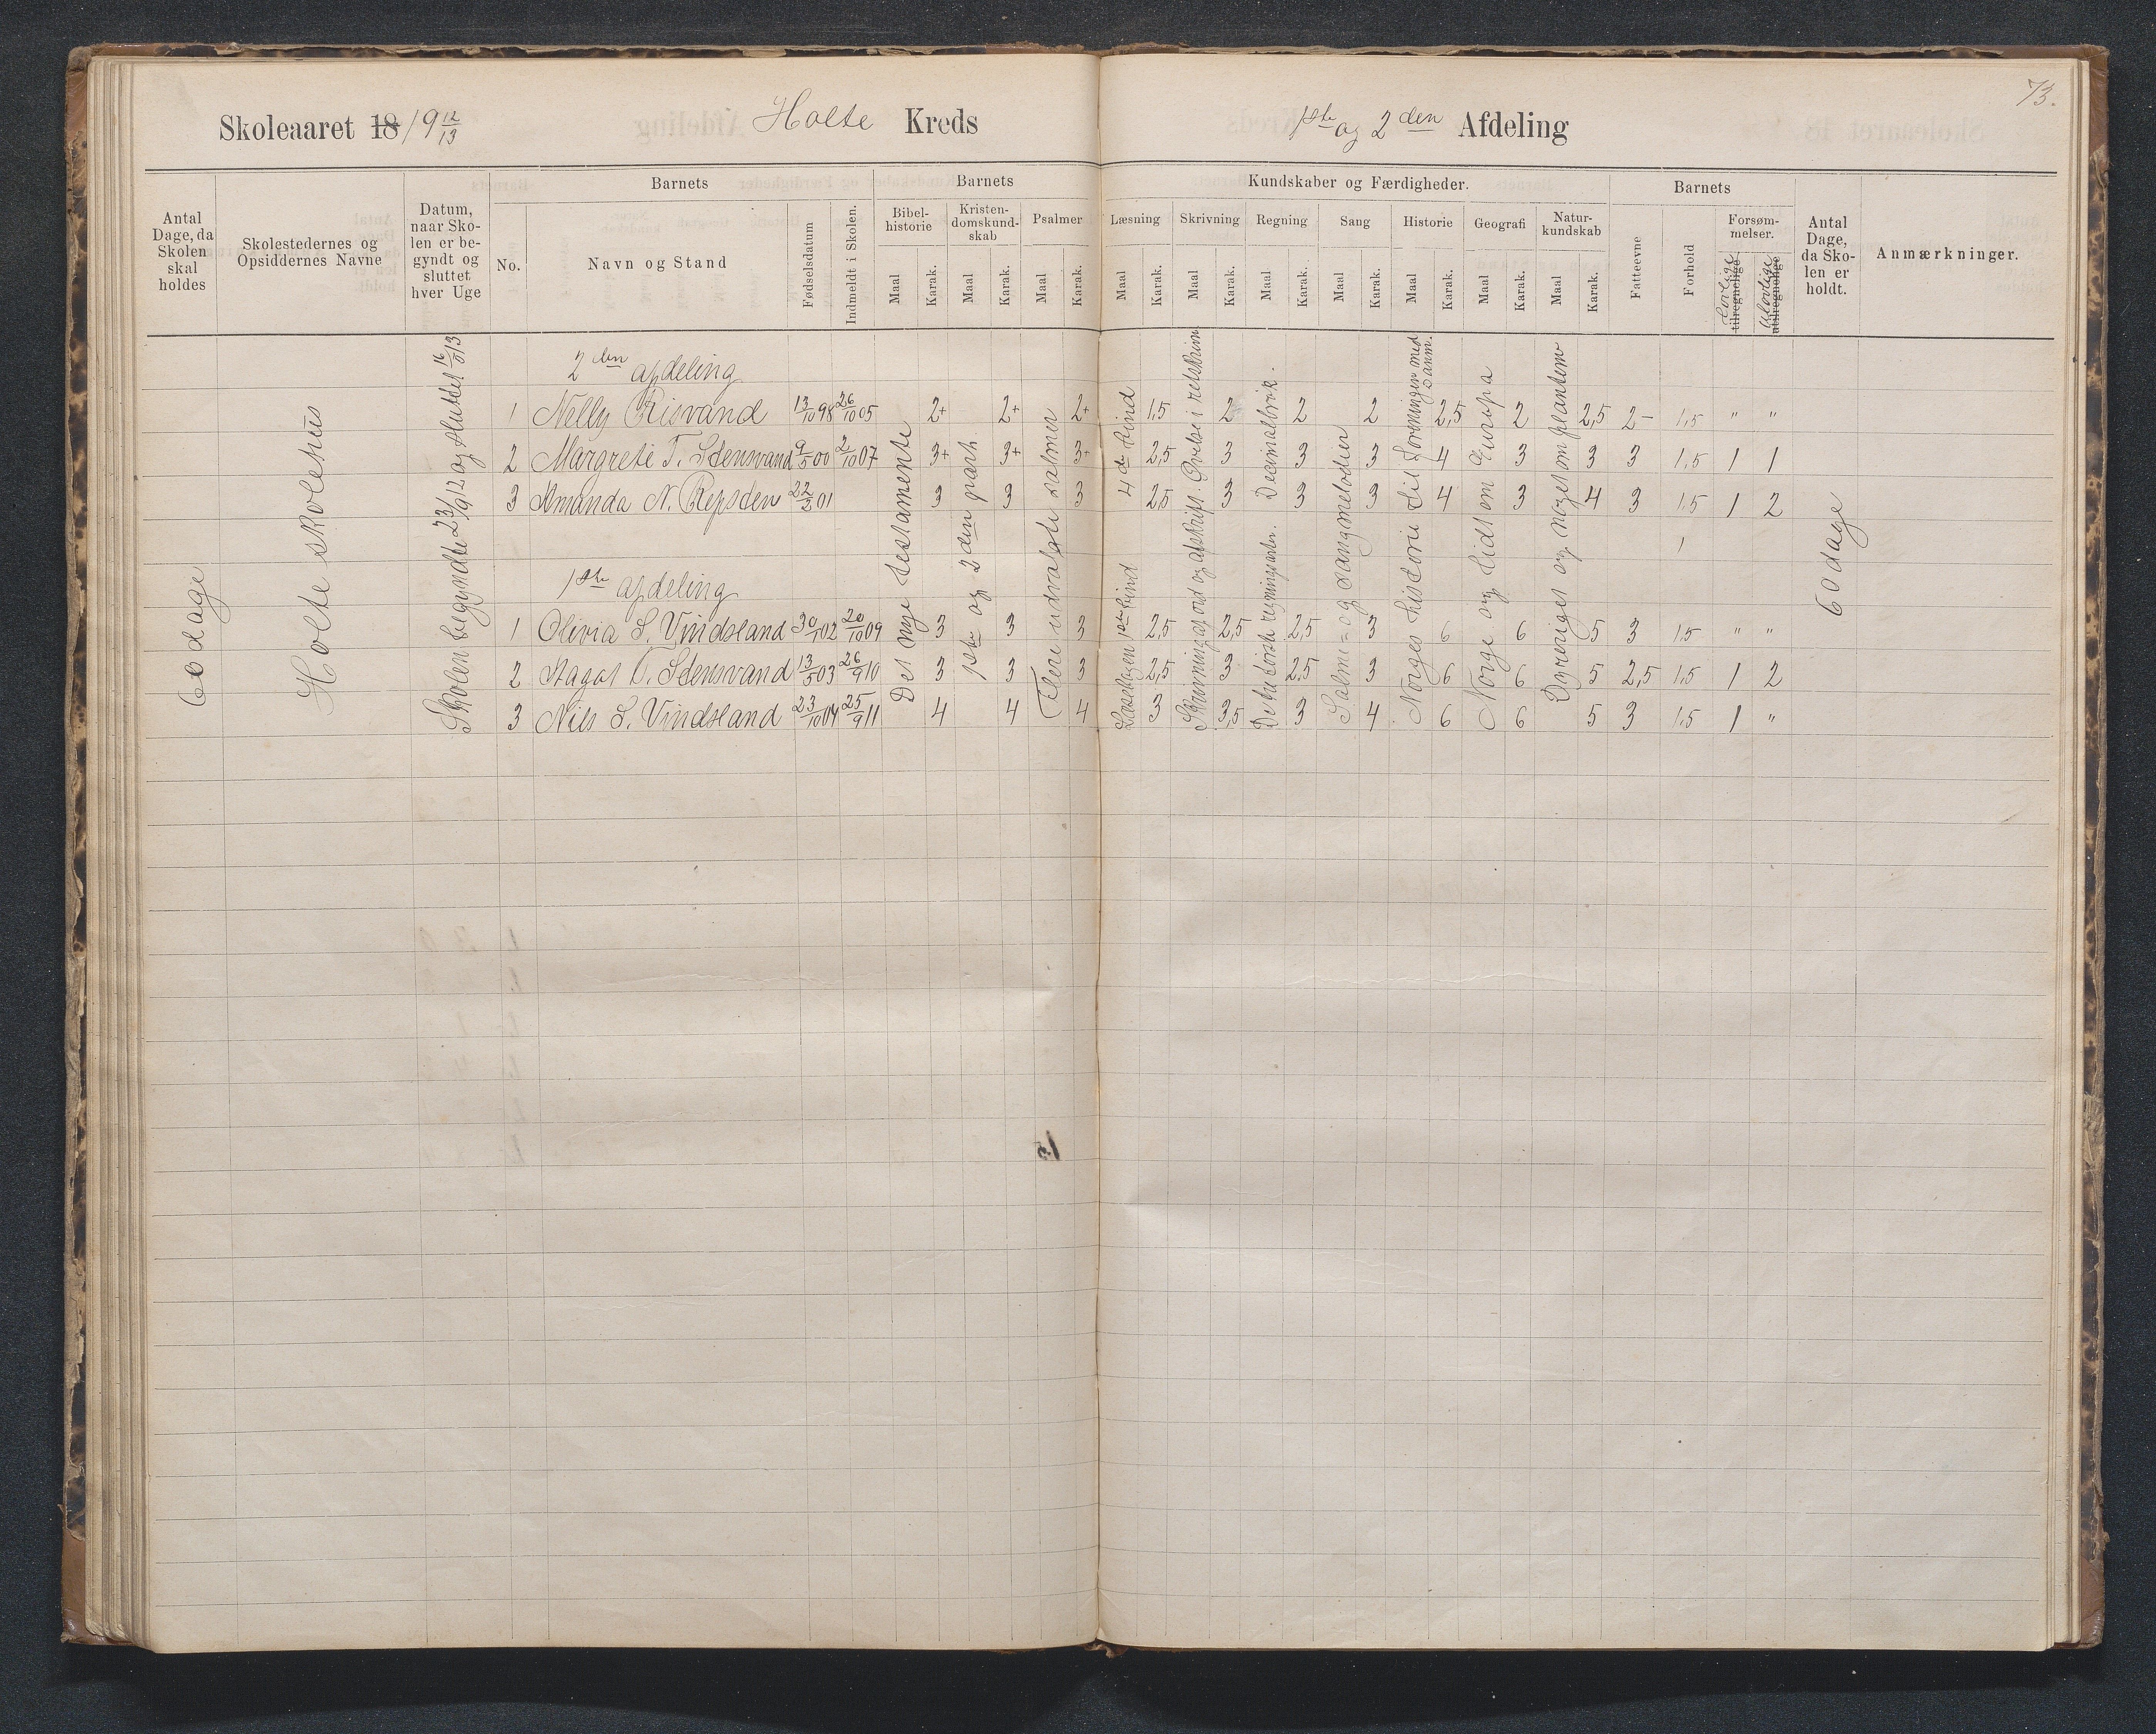 73.
Skoleaaret 18 19 12/13 Holte Kreds 1ste og 2den Afdeling
Antal Dage, da Skolen skal holdes
Skolestedernes og Opsiddernes Navne
Datum, naar Skolen er begyndt og sluttet hver Uge
No.
Barnets
Navn og Stand
Fødselsdatum
Indmeldt i Skolen.
Barnets
Bibelhistorie Maal Karak.
Kristendomskundskab Maal Karak.
Psalmer Maal Karak.
Kundskaber og Færdigheder.
Læsning Maal Karak.
Skrivning Maal Karak.
Regning Maal Karak.
Sang Maal Karak.
Historie Maal Karak.
Geografi Maal Karak.
Naturkundskab Maal Karak.
Barnets
Fatteevne
Forhold
Forsømmelser.
Lovlige tilregnelige
Ulovlige utilregnelige
Antal Dage, da Skolen er holdt.
Anmærkninger.
60 dage
Holte skolehus
Skolen begyndte 23/9 12 og sluttet 16/9 13
Det nye testamente
1ste og 2den part
Flere udvalgte salmer
Læsebogen 1ste bind 4de bind
Skrivning af ord og afskrift. Øvelse i retskrivn
De fire første regningsarter. Decimalbrøk.
Salme= og sangmelodier
Norges historie til foreningen med Danm.
Norge og lidt om Europa
Dyreriget og noget om planterne
60 dage
2den afdeling
1 Nelly Risvand 13/10 98 26/10 05 2+ 2+ 2+ 1,5 2 2 2 2,5 2 2,5 2- 1,5 " "
2 Margrete T. Stensvand 9/5 00 2/10 07 3+ 3+ 3+ 2,5 3 3 3 4 3 3 3 1,5 1 1
3 Amanda N. Repsden 22/3 01 3 3 3 2,5 3 3 3 4 3 4 3 1,5 1 2
1ste afdeling
1 Olivia S. Vindsland 30/1 02 20/10 09 3 3 3 2,5 2,5 2,5 3 6 6 5 3 1,5 " "
2 Aagot T. Stensvand 13/5 03 26/9 10 3 3 3 2,5 3 2,5 3 6 6 5 2,5 1,5 1 2
3 Nils S. Vindsland 23/10 04 25/9 11 4 4 4 3 3,5 3 4 6 6 5 3 1,5 1 "